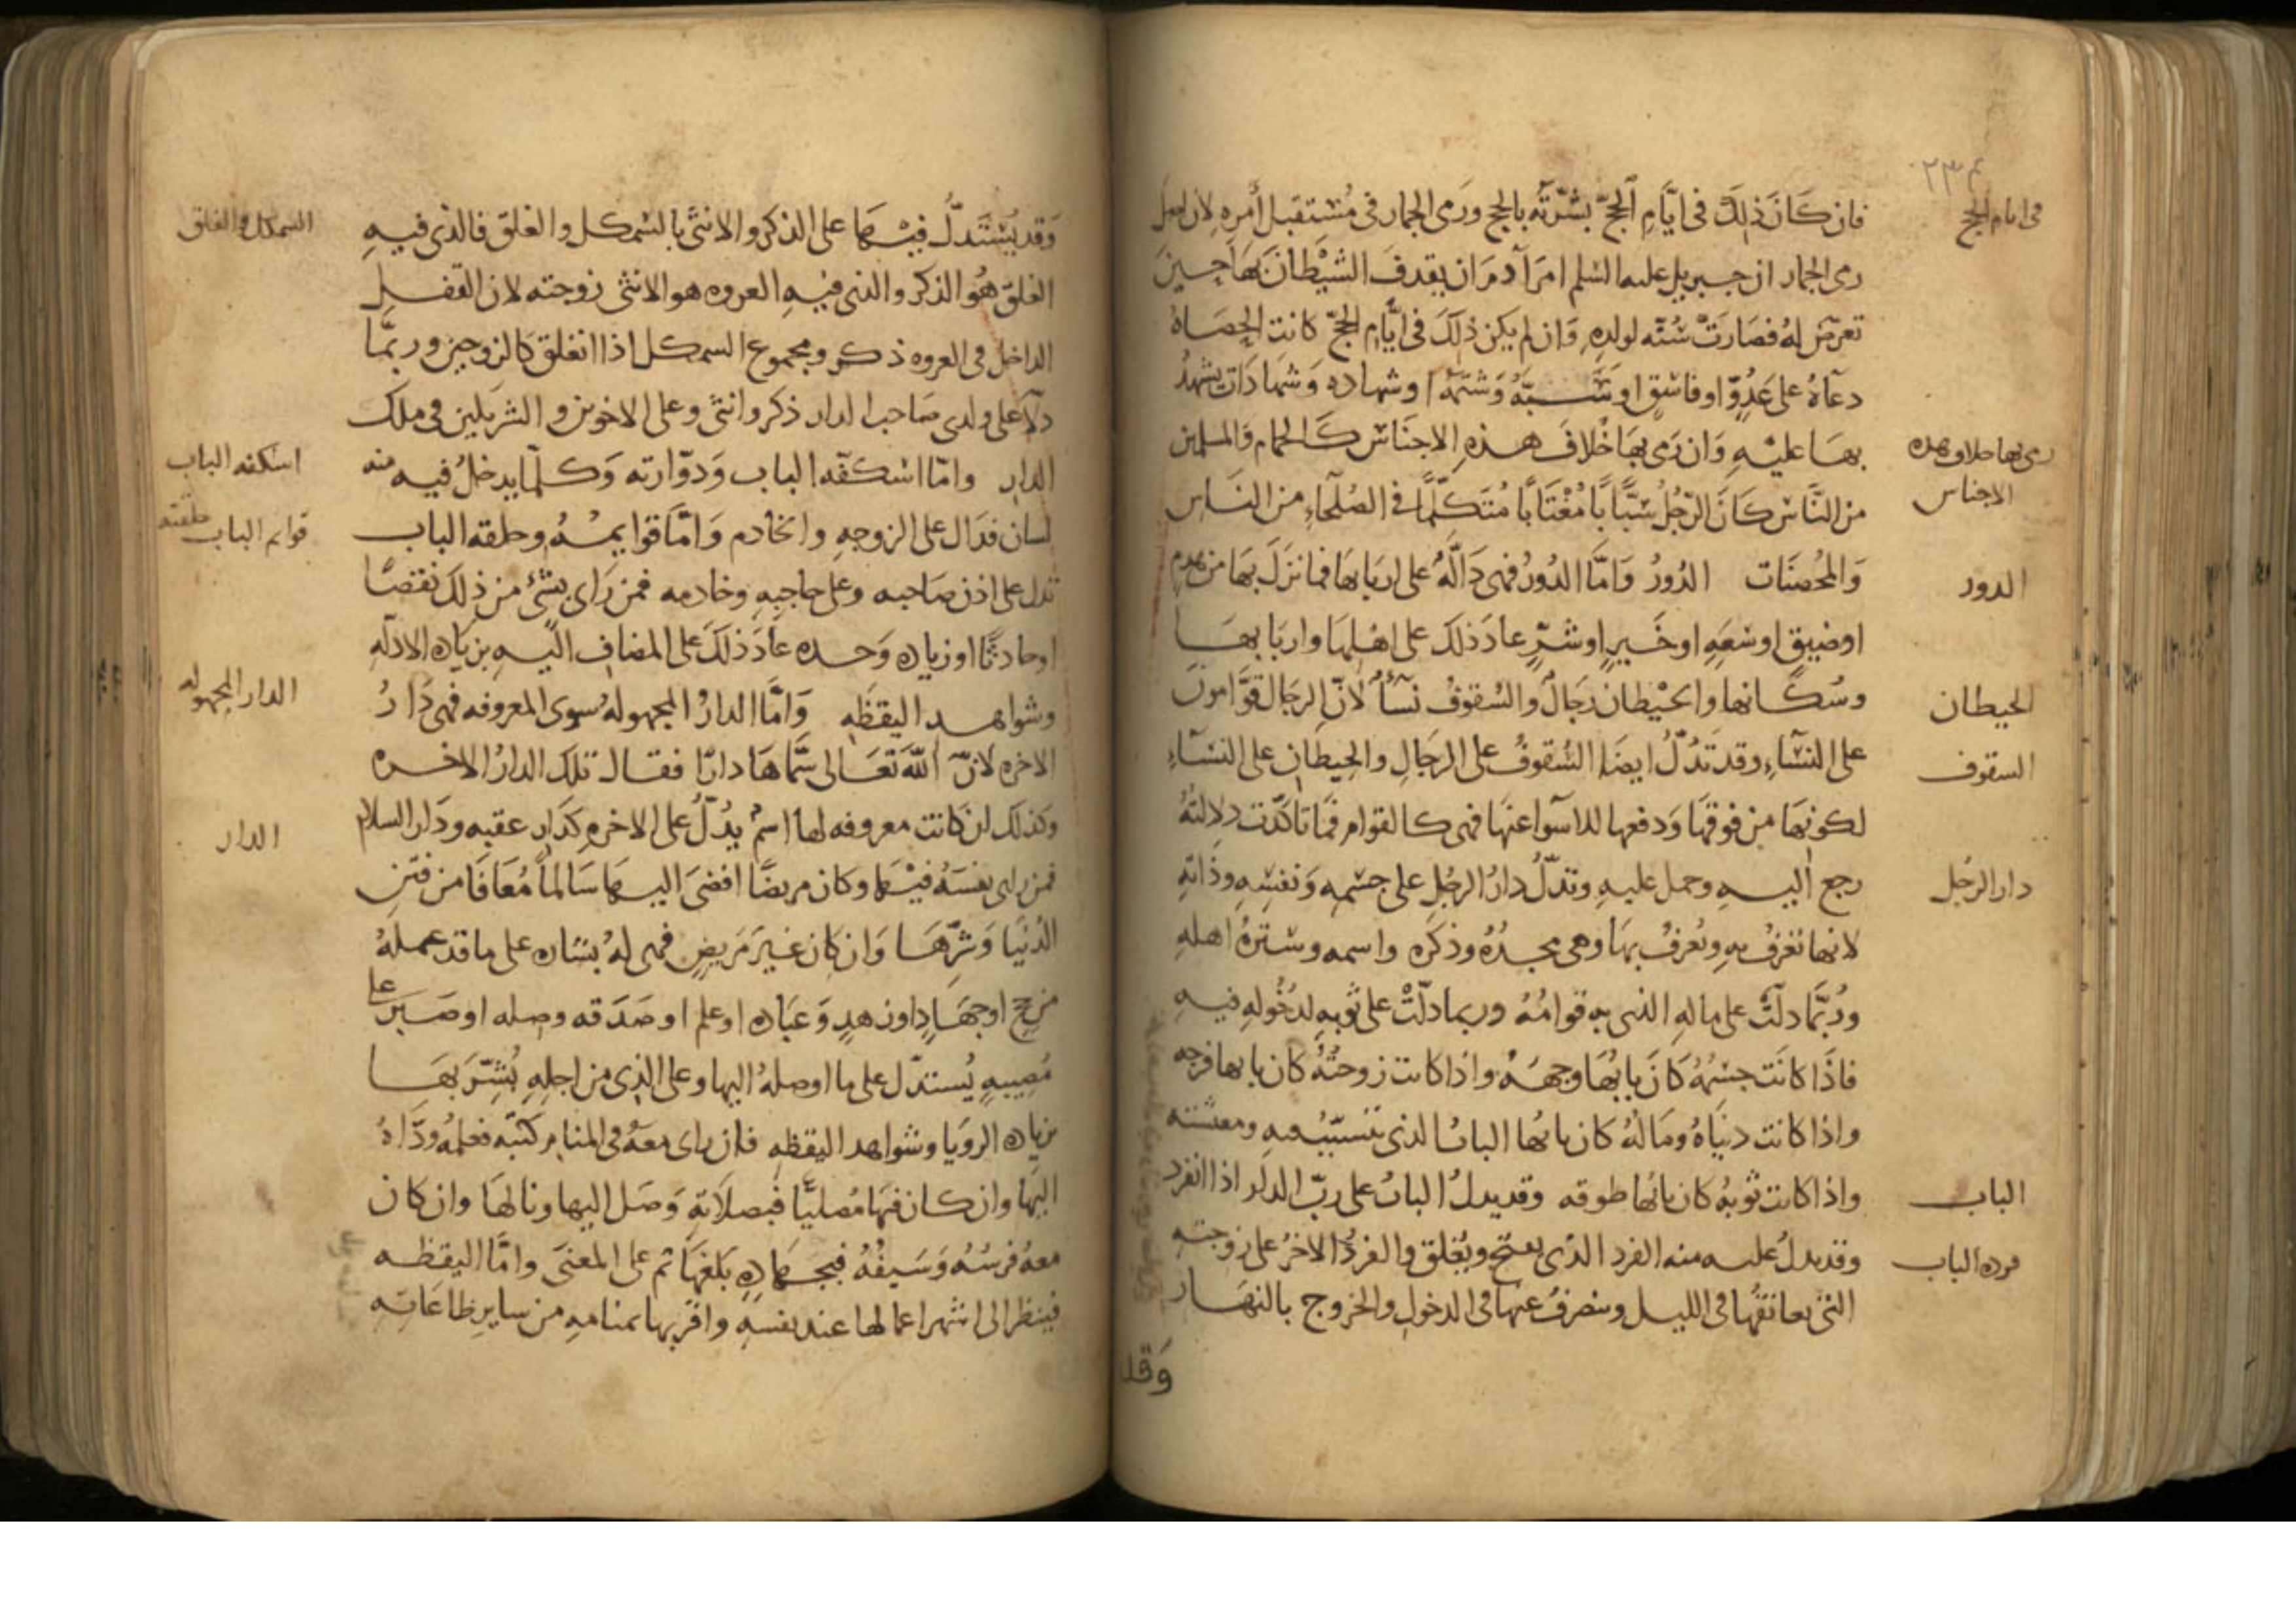 ٢٣م
فى ايام الحج
فان كَانَ ذٰلِكَ فى ايَّامِ الحجّ بشّرَتْه بالحج ورَمى الجمار فى مُسْتقبل أمرِه لان اصل
رمى الجمار ان جبريل عليه السّلم امَرَ آدمَ ان يقدفَ الشيْطانَ بهَا حينَ
تعرّضَ لهُ فصَارَتْ سُنّه لولدِهِ وَان لم يكن ذٰلكَ فى ايَّامِ الحجّ كانت الحِصَاة
دعآهُ على عَدُوّ او فاسِقٍ او سَبّهُ وَشتمَهُ او شهاده وَشهادَات يشهدُ
رمى بها خلاف هذه
الاجناس
بهَا عليْهِ وَان رَمى بهَا خلافَ هذهِ الاجنَاسْ كَالحمام وَالمسلمين
من النَّاسْ كَانَ الرّجُلُ سَبَّابًا مُغْتَابًا مُتَكَلِّمًا فى الصُلَحآءِ من النَاسِ
الدور
وَالمُحصنَات الدُورُ وَامَّا الدُورُ فهى دَالّهُ على اربَابهَا فما نزَلَ بهَا من هدم
او ضيق او سَعَهِ او خَيرٍ او شرٍّ عادَ ذلك على اهْلِهَا واربَابهَا
الحيطان
وسُكّانها والحيْطان رجَالٌ والسُقوفُ نسآءٌ لانّ الرجَال قوّامونَ
السقوف
على النسَآءِ وقد تدُلّ ايضًا السُقوفُ على الرجَالِ والحِيطَانِ على النسَآءِ
لكونهَا من فوقهَا وَدفعها للاسوآ عنهَا فهى كالقوام فما تاكّدت دلالتُهُ
دار الرجُل
رجع اليهِ وحمل عليهِ وتدلّ دارُ الرجُلِ على جسْمِهِ وَنفسِهِ وذاتهِ
لانها تعْرَفُ بهِ ويُعرفُ بهَا وهى مجدُهُ وذكرَه واسمه وسترُهُ اهلهِ
ورُبَّمَا دلّتْ على مالهِ الذى بهِ قوامُهُ وربما دلّتْ على ثوبهِ لدُخُولهِ فيهِ
فاذَا كانَت جسْمُهُ كَانَ بابُهَا وجهَهُ واذا كانت زوجتُهُ كان بابها فرجه
واذا كانت دنيَاهُ ومَالهُ كان بابُها البابُ الذى يتسبّبُ فيهِ ومعيشته
الباب
واذا كانت ثوبهُ كان بابُها طوقه وقد يدلُ البابُ على ربّ الدار اذا انفرد
فرده الباب
وقد يدلُ عليه منه الفرد الذى يفتح ويُغلق والفردُ الاخرُ على زوجتهِ
التى يعانقُها فى الليل وينصرفُ عنها فى الدخولِ والخروج بالنهَار
وَقد
السكل والغلق
وَقد يُسْتَدلّ فيهَا على الذكر والانثى بالسكل والغلق فالذى فيهِ
الغلق هُوَ الذكر والذى فيْهِ العروه هو الانثى زوجته لان القفل
الداخل فى العروه ذكر ومجموع السكل اذا انغلق كالزوجين وربمّا
دلّا على ولدى صَاحب الدار ذكر وانثى وعلى الاخوين والشريكين فى ملك
اسكفه الباب
الدار وامّا اسكفّه الباب وَدوّارته وَكلّما يدخلُ فيه منه
قوائم الباب حلقته
لسان فدَال على الزوجهِ والخادم وَامّا قوايمُهُ وحلقه الباب
تدل على اذن صَاحبه وعلى حاجبهِ وخادمه فمن رَاى بشئ من ذلكَ نقصًا
او حادثًا او زياده وَحده عَادَ ذلكَ على المضاف اليْهِ بزياده الادله
الدار المجهوله
وشواهد اليقظهِ وَامَّا الدارُ المجهولهُ سوى المعروفه فهى دَارُ
الاخره لانّ اللهَ تعَالى سَمَّاهَا دارًا فقال تلك الدارُ الاخره
الدار
وكذلك ان كانت معروفه لها اسمُ يدُلّ على الاخرهِ كدَار عقبه ودَار السلام
فمن راى نفسَهُ فيْها وكان مريضًا افضىَ اليهَا سَالمًا مُعَافًا من فتنِ
الدُنيَا وَشرّهَا وَان كان غيرَ مَريضٍ فهى لهُ بشاره على ما قد عملهُ
من حج او جهَادٍ او زهدٍ وَعبَاده او علم او صَدَقه وصله او صَبر على
مُصِيبهِ يُستدلّ على ما اوصلهُ اليها وعلى الذى من اجلِهِ بُشّرَ بهَا
بزياده الرويَا وشواهد اليقظهِ فان راى معَهُ فى المنام كتبه فعلمُهُ ودّاهُ
اليهَا وان كان فيهَا مُصليًّا فبصلاتهِ وَصَل اليها ونالهَا وان كان
معهُ فرسُهُ وَسَيفُهُ فبجهادِهِ بلغهَا ثم على المعنىَ وامَّا اليقظه
فينظر الى اشهر اعمالها عند نفسهِ واقربها بمنامهِ من سايرِ طاعَاتهِ